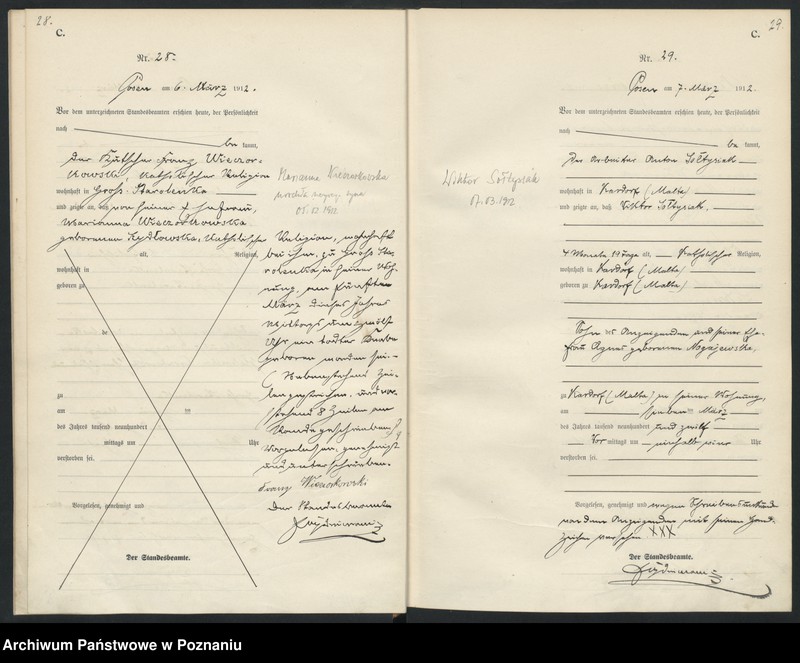 28.
C.
Nr. 28.
Posen am 6. März 1912.
Vor dem unterzeichneten Standesbeamten erschien heute, der Persönlichkeit
nach
be kannt,
der Kutscher Franz Wieczor-
kowski, katholischer Religion
wohnhaft in Groß-Starolenka
und zeigte an, daß von seiner Ehefrau,
Marianna Wieczorkowska
geborenen Rydlowska, katholischer
alt, Religion,
wohnhaft in
geboren zu
de
zu
am ten
des Jahres tausend neunhundert
mittags um Uhr
verstorben sei.
Vorgelesen, genehmigt und
Der Standesbeamte.
Marianna Wieczorkowska
05.03.1912
Religion, wohnhaft
bei ihm, zu Groß-Sta-
rolenka in seiner Woh-
nung, am fünften
März dieses Jahres
Mittags um zwölf
Uhr ein todter Knabe
geboren worden sei.
Nebenstehend Zei-
len gestrichen, und vor-
stehend 8 Zeilen am
Rande geschrieben.
Vorgelesen, genehmigt
und unterschrieben.
Franz Wieczorkowski
Der Standesbeamte
29.
C.
Nr. 29.
Posen am 7. März 1912.
Vor dem unterzeichneten Standesbeamten erschien heute, der Persönlichkeit
nach
be kannt,
der Arbeiter Anton Sołtysiak
wohnhaft in Kardorf (Malta)
und zeigte an, daß Viktor Sołtysiak,
4 Monate 14 Tage alt, katholischer Religion,
wohnhaft in Kardorf (Malta)
geboren zu Kardorf (Malta)
Sohn des Anzeigenden und seiner Ehe-
frau Agnes geborenen
zu Kardorf (Malta) in seiner Wohnung,
am sieben ten März
des Jahres tausend neunhundert und zwölf
Vor mittags um einhalb vier Uhr
verstorben sei.
Vorgelesen, genehmigt und wegen Schreibensunkunde
von dem Anzeigenden mit seinem Hand-
zeichen versehen XXX
Der Standesbeamte.
Wiktor Sołtysiak
07.03.1912
Archiwum Państwowe w Poznaniu